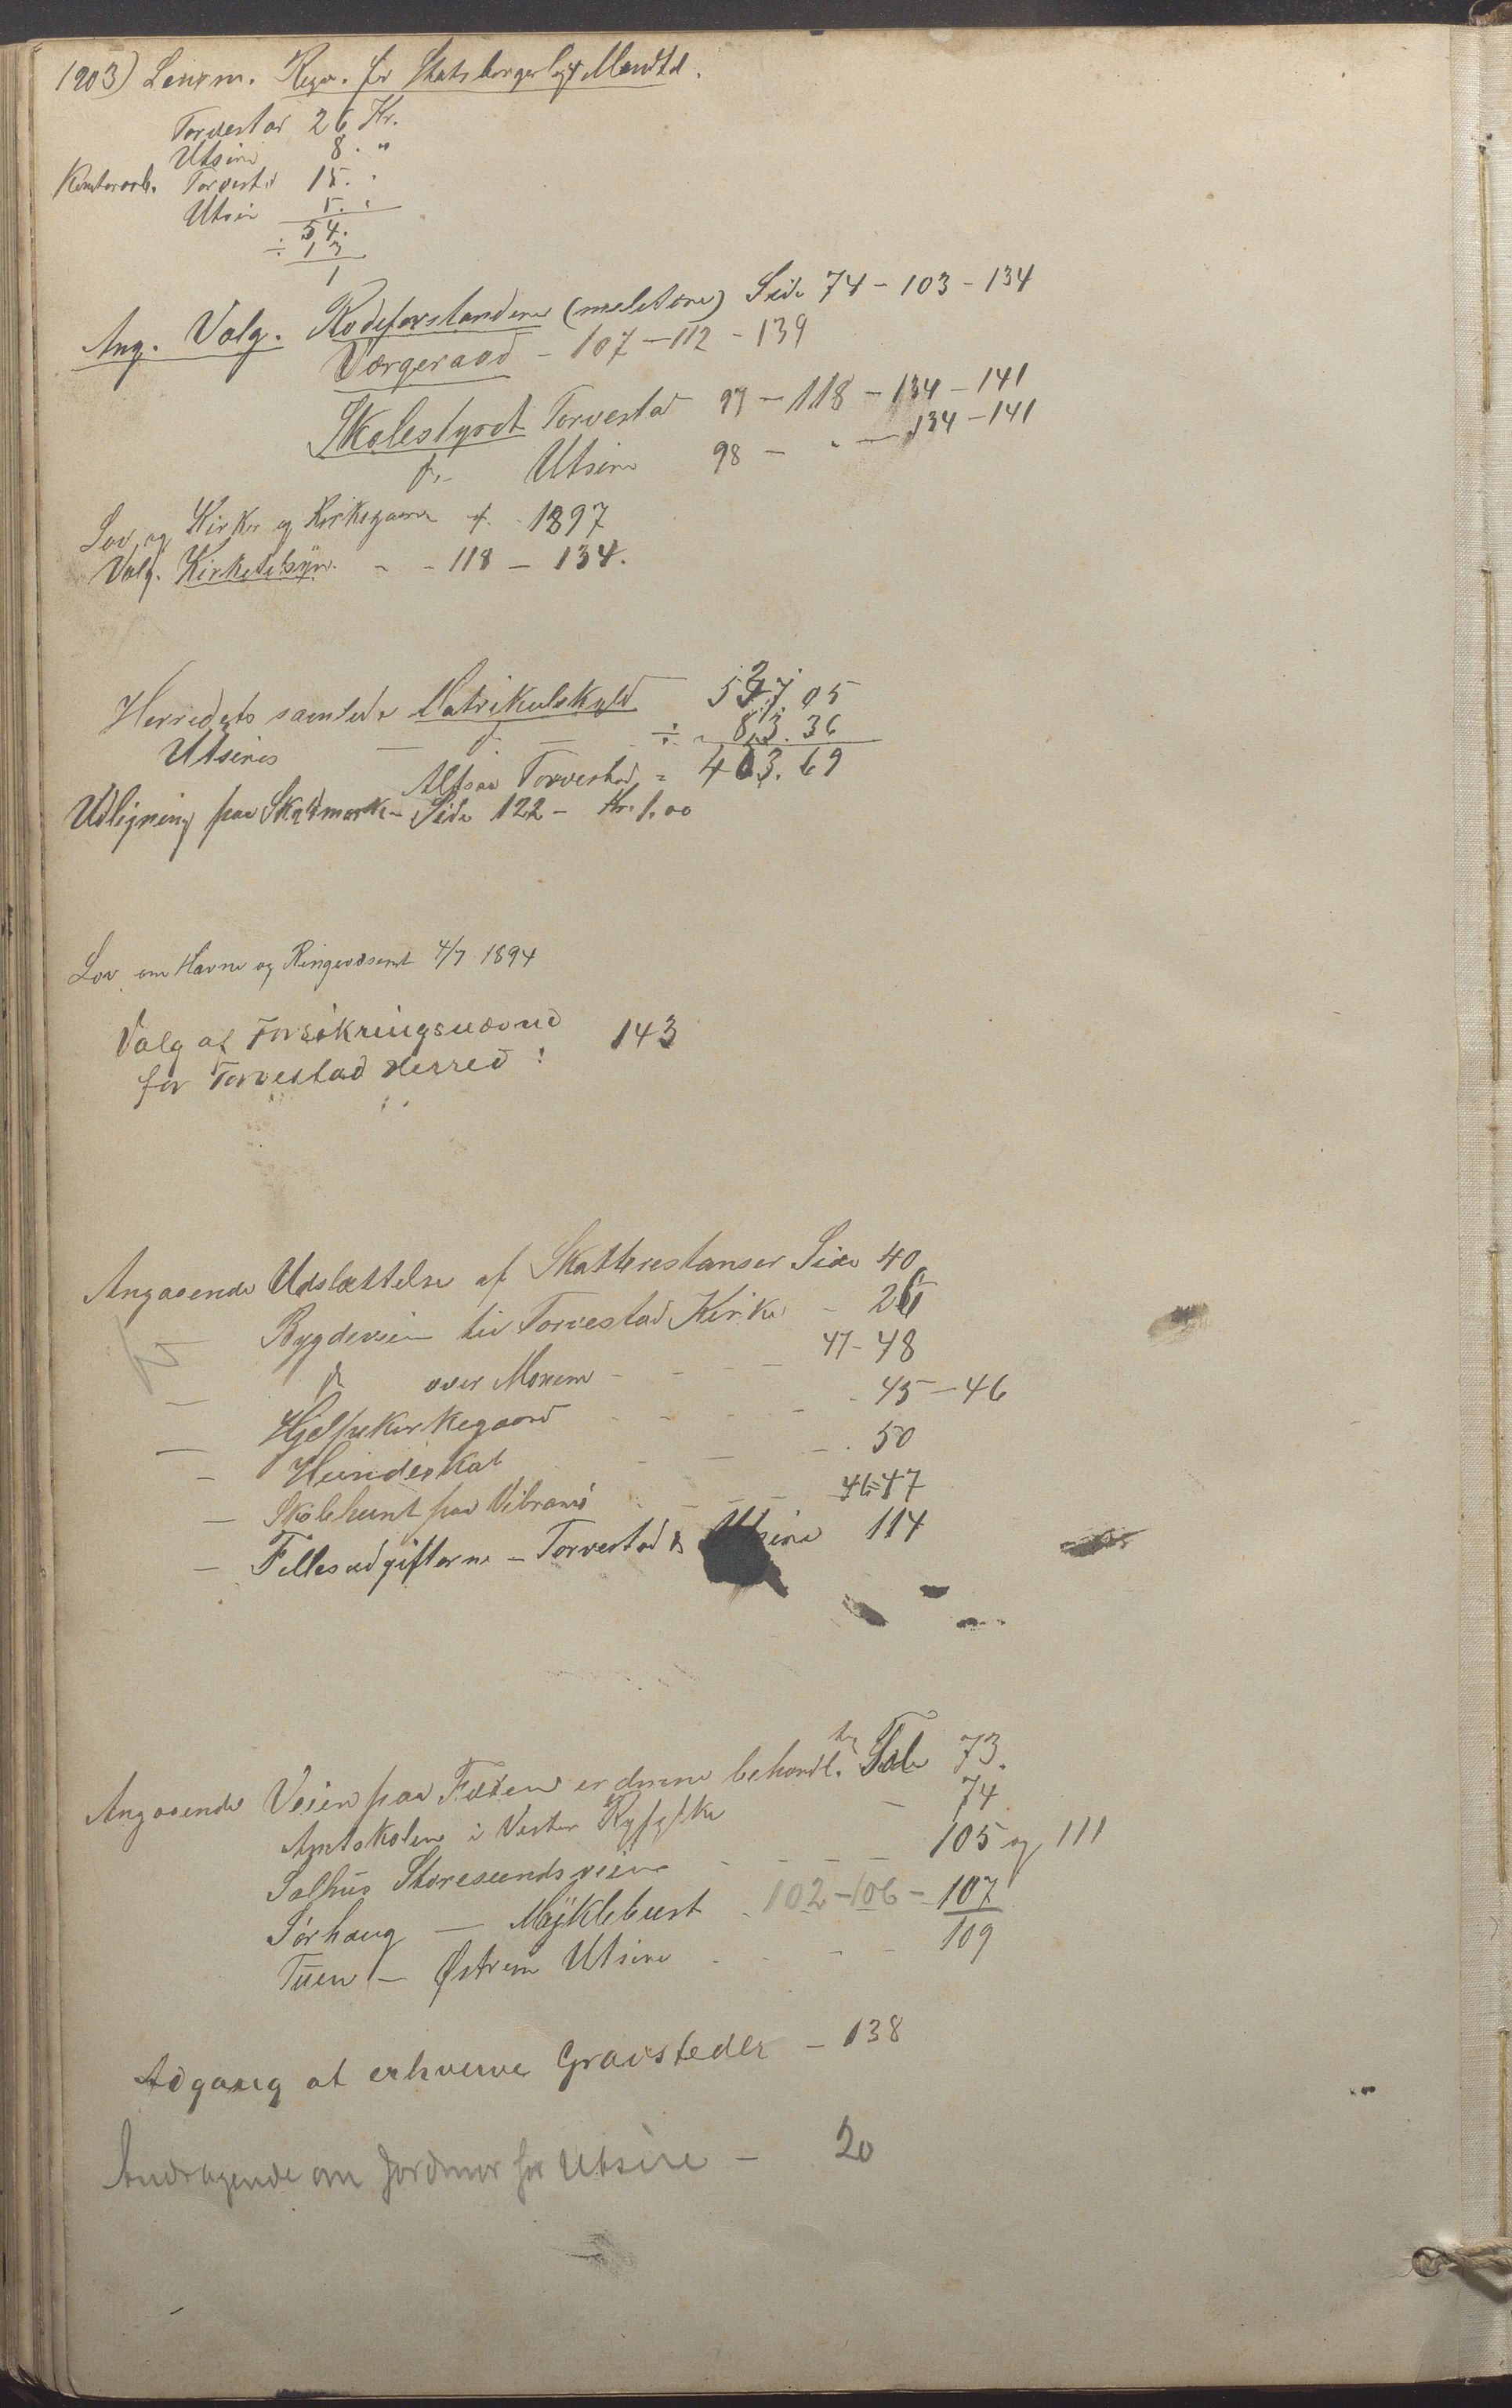 1903) Lensm. Regn. for Statsborgerligt Mandtal.
Torvestad 26 Kr.
Utsire 8. "
Kontorarb. Torvestd 15. "
Utsir 5. "
54.
÷ 13
1
Ang. Valg. Rodeforstandere (meletære) Side 74 - 103 - 134
Værgeraad - 107 - 112 - 139
Skolestyret Torvestad 97 - 118 - 134 - 141
do Utsire 98 - " - 134 - 141
Lov og Kirker og Kirkegaarde af 1897
Valg. Kirketilsyn. - - 118 - 134.
Herredets samlede Matrikulskyld 527.05
Utsires — do — ÷ 83.36
Altsaa Torvestad = 443.69
Udligning paa Skyldmark - Side 122 - Kr. 1.00
Lov om Havne og Ringevæsenet 4/7 1894
Valg af Forsikringsnævnd 143
for Torvestad Herred :
Angaaende Udslættelse af Skatterestanser Side 40
Bygdevein til Torvestad Kirke - 26
— do over Monem - - - 47-48
— Hjelpekirkegaard - - - - 45-46
— Hundeskat - - - 50
— Skoletunt paa Vibrandø - - - 46-47
— Fellesudgifterne - Torvestad & Utsire 114
Angaaende Veien paa Fæøen er denne behandl. Side 73.
Amtskolen i Vester Ryfylke - 74
Salhus Storesundsveien - - - - 105 og 111
Sørhaug — Myklebust - 102-106 - 107
Tuen — Østrem Utsire - - - 109
Adgang at erhverve Gravsteder - 138
Andragende om Jordmor for Utsire - 20